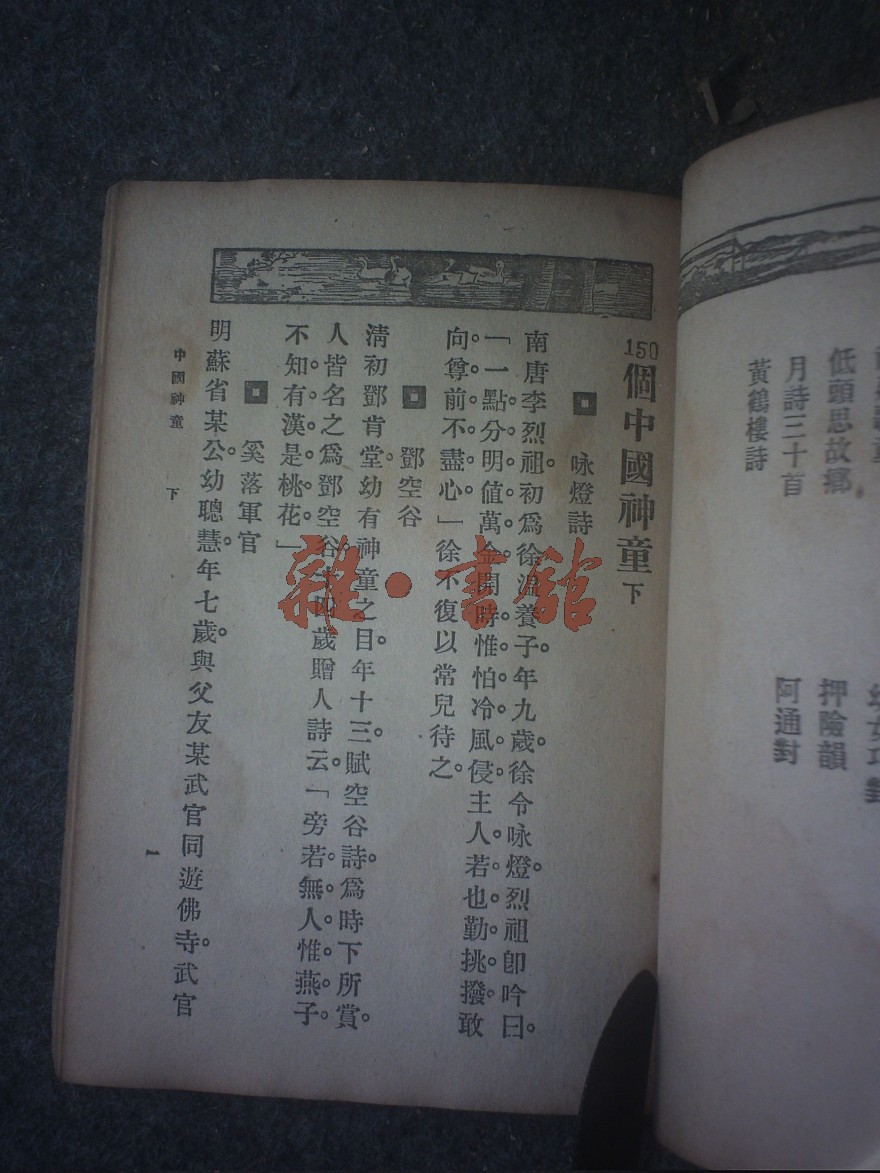 黃鶴樓詩
月詩三十首
低頭思故鄉
阿通對
押險韻
150個中國神童下
咏燈詩
南唐李烈祖初爲徐溫養子年九歲。徐令咏燈。烈祖卽吟曰。
「一點分明值萬金開時惟怕冷風侵主人若也勤挑撥敢
向尊前不盡心」徐不復以常兒待之。
鄧空谷
淸初鄧肯堂幼有神童之目年十三賦空谷詩。爲時下所賞。
人皆名之爲鄧空谷。十四歲贈人詩云「旁若無人惟燕子
不知有漢是桃花。」
奚落軍官
明蘇省某公幼聰慧。年七歲。與父友某武官同遊佛寺。武官
中國神童 下 一
雜·書館